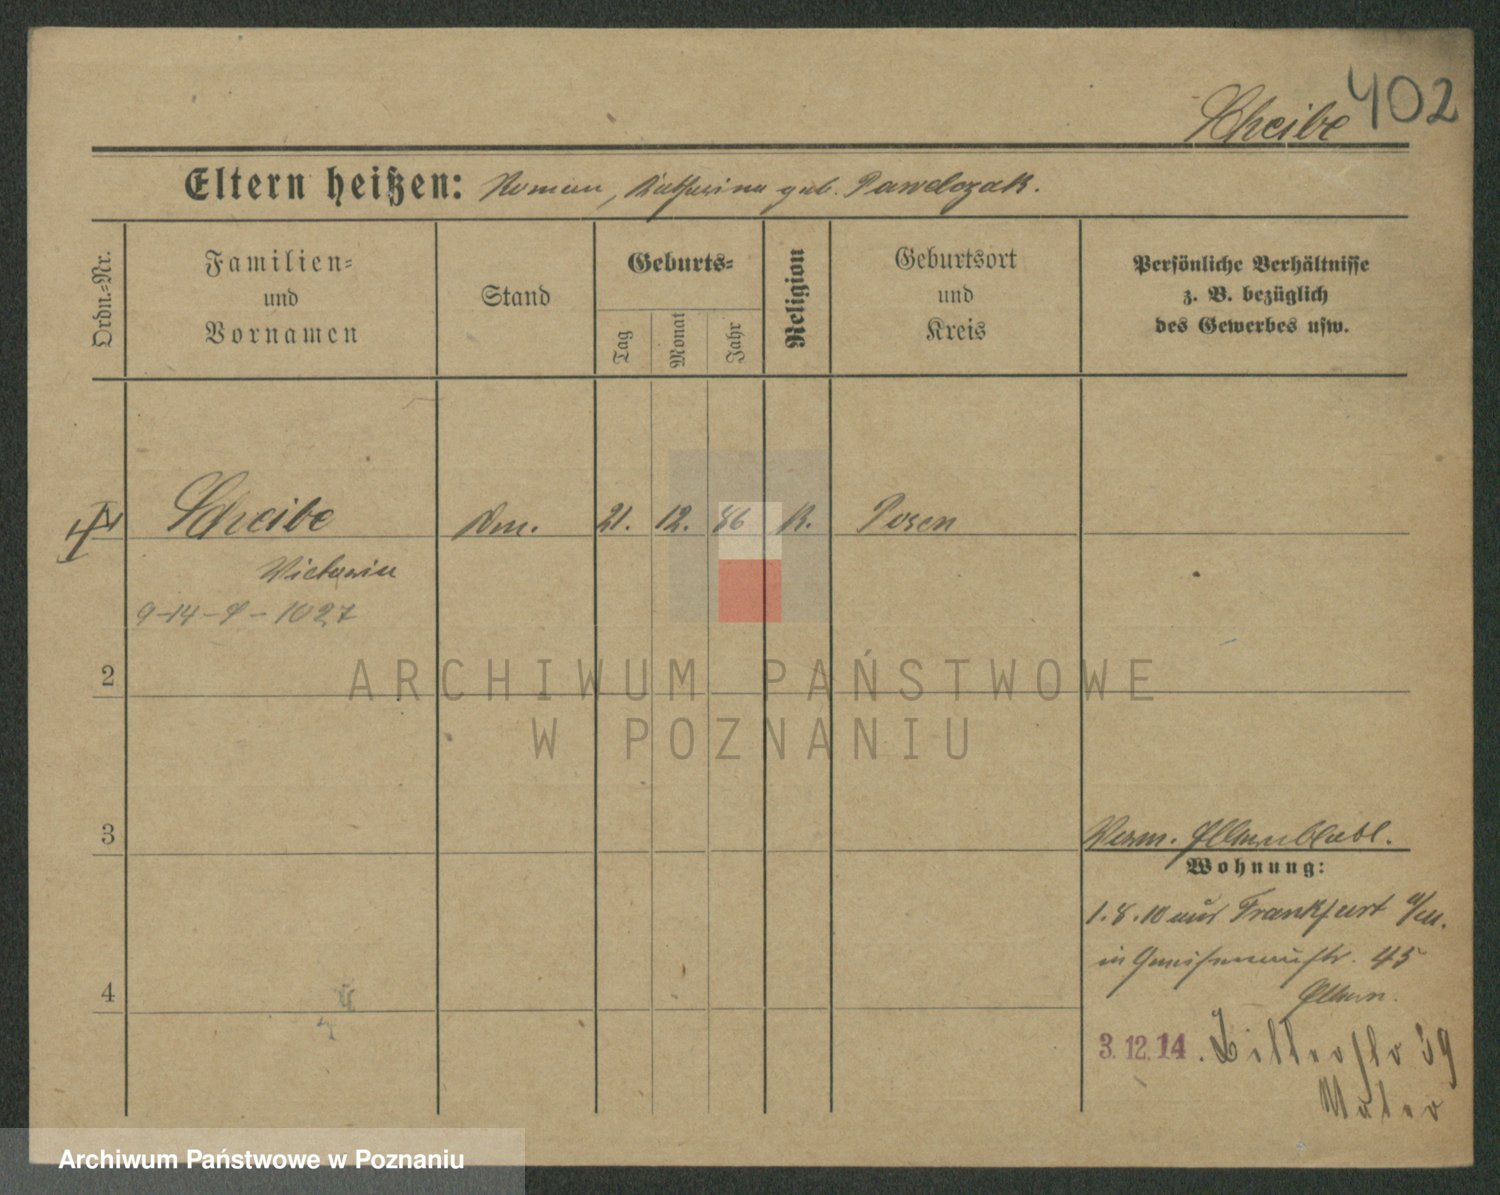 402
Scheibe
Eltern heißen: Roman, Katharina geb. Pawelczak.
Ordn.-Nr.
Familien-
und
Vornamen
Stand
Geburts-
Tag
Monat
Jahr
Religion
Geburtsort
und
Kreis
Persönliche Verhältnisse
z. B. bezüglich
des Gewerbes usw.
Scheibe 21. 12. 86 K. Posen
Victoria
9-14-9-1027
2
ARCHIWUM PAŃSTWOWE
W POZNANIU
3
Wohnung:
1.8.10 aus Frankfurt a/M.
in Gneisenaustr. 45
Eltern.
4
3.12.14.
39
Archiwum Państwowe w Poznaniu